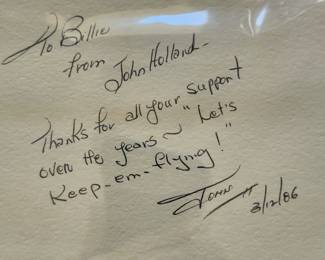 To Billie
from
John Holland-
Thanks for all your support
over the years ~ "Let's
Keep-em-flying!"
John H
3/12/86